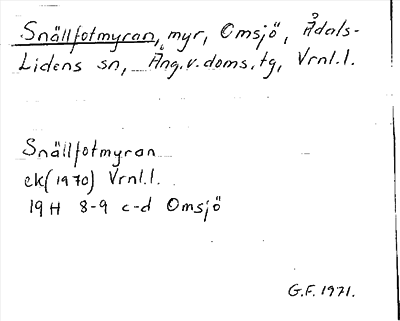 Snällfotmyran, myr, Omsjö, Ådals-
Lidens sn, Ång.v.doms.tg, Vrnl.l.
Snällfotmyran
ek(1970) Vrnl.l.
19H 8-9 c-d Omsjö
G.F. 1971.